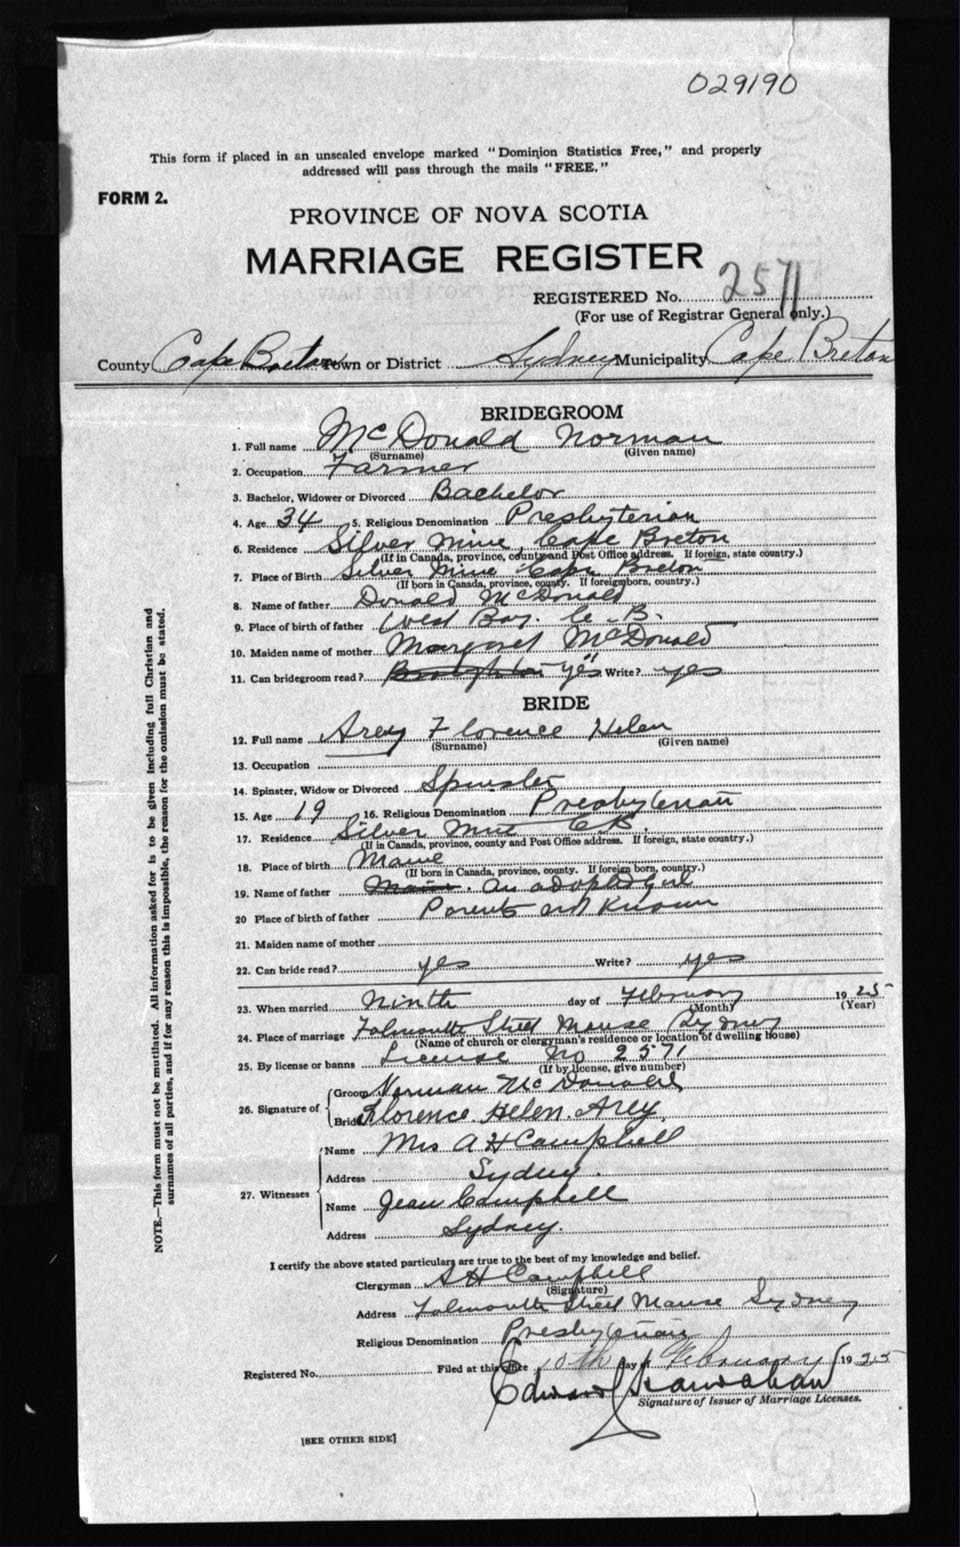 029190
This form if placed in an unsealed envelope marked "Dominion Statistics Free," and properly
addressed will pass through the mails "FREE."
FORM 2.
PROVINCE OF NOVA SCOTIA
MARRIAGE REGISTER
REGISTERED No. 2571
(For use of Registrar General only.)
County Cape Breton Town or District Sydney Municipality Cape Breton
BRIDEGROOM
1. Full name McDonald Norman
(Surname) (Given name)
2. Occupation Farmer
3. Bachelor, Widower or Divorced Bachelor
4. Age 34 5. Religious Denomination Presbyterian
6. Residence Silver Mine, Cape Breton
(If in Canada, province, county and Post Office address. If foreign, state country.)
7. Place of Birth Silver Mine Cape Breton
(If born in Canada, province, county. If foreign born, country.)
8. Name of father Donald McDonald
9. Place of birth of father West Bay. C. B.
10. Maiden name of mother Margaret McDonald
11. Can bridegroom read? yes Write? yes
BRIDE
12. Full name Arey Florence Helen
(Surname) (Given name)
13. Occupation
14. Spinster, Widow or Divorced Spinster
15. Age 19 16. Religious Denomination Presbyterian
17. Residence Silver Mine C B.
(If in Canada, province, county and Post Office address. If foreign, state country.)
18. Place of birth Maine
(If born in Canada, province, county. If foreign born, country.)
19. Name of father Maine. An adopted girl
20 Place of birth of father Parents not known
21. Maiden name of mother
22. Can bride read? yes Write? yes
23. When married Ninth day of February 1925
(Month) (Year)
24. Place of marriage Falmouth Street Manse Sydney
(Name of church or clergyman's residence or location of dwelling house)
25. By license or banns License No 2571
(If by license, give number)
26. Signature of
Groom Norman McDonald
Bride Florence Helen Arey
27. Witnesses
Name Mrs A H Campbell
Address Sydney.
Name Jean Campbell
Address Sydney.
I certify the above stated particulars are true to the best of my knowledge and belief.
Clergyman A H Campbell
(Signature)
Address Falmouth Street Manse Sydney
Religious Denomination Presbyterian
Registered No. Filed at this office 10th day of February 1925
Edward
Signature of Issuer of Marriage Licenses.
[SEE OTHER SIDE]
NOTE.—This form must not be mutilated. All information asked for is to be given including full Christian and
surnames of all parties, and if for any reason this is impossible, the reason for the omission must be stated.